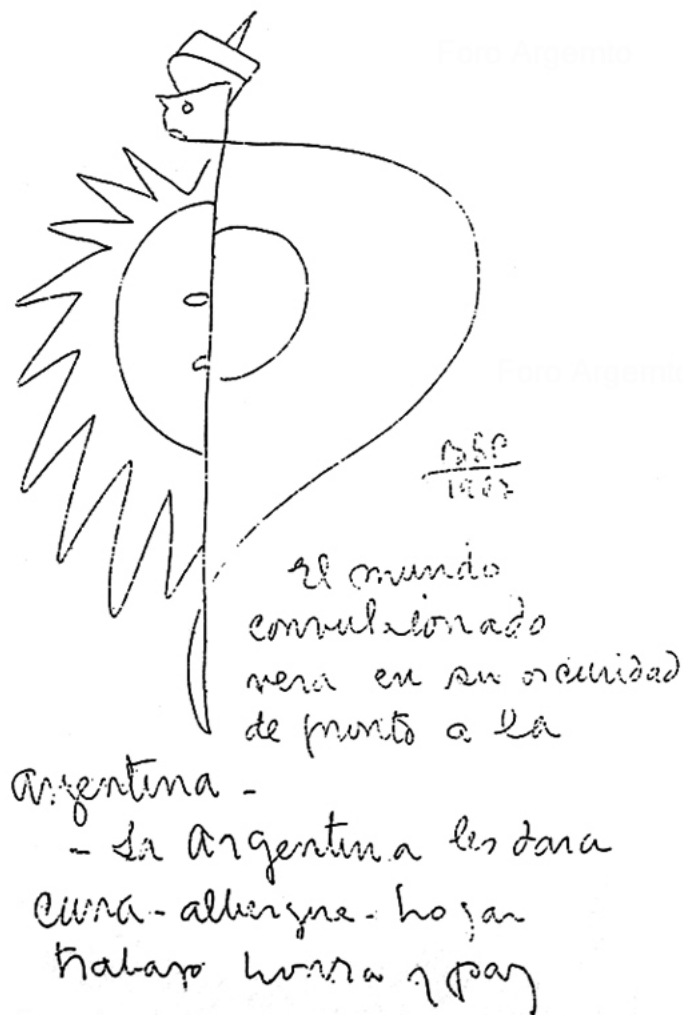 Foro Argemto
Foro Argemto
BSP
1967
El mundo
convulsionado
vera en su oscuridad
de pronto a la
argentina -
- La Argentina les dara
cuna - albergue - hogar
trabajo honra y paz